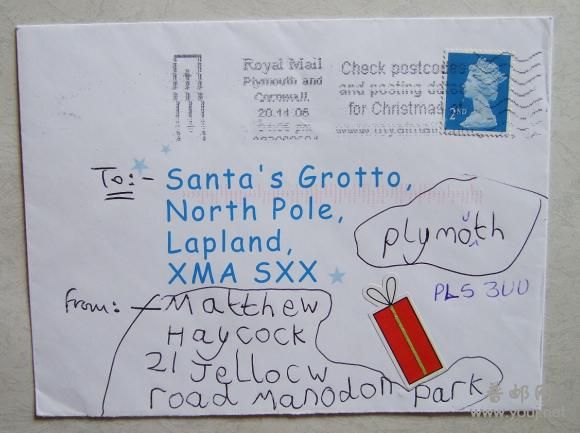 Royal Mail
Plymouth and
Cornwall
20.11.06
Check postcodes
and posting dates
for Christmas at
2ND
To:-
Santa's Grotto,
North Pole,
Lapland,
XMA SXX
plymoth
u
PL5 3UU
From:-
Matthew
Haycock
21 Jellocw
road manodom park
普邮网